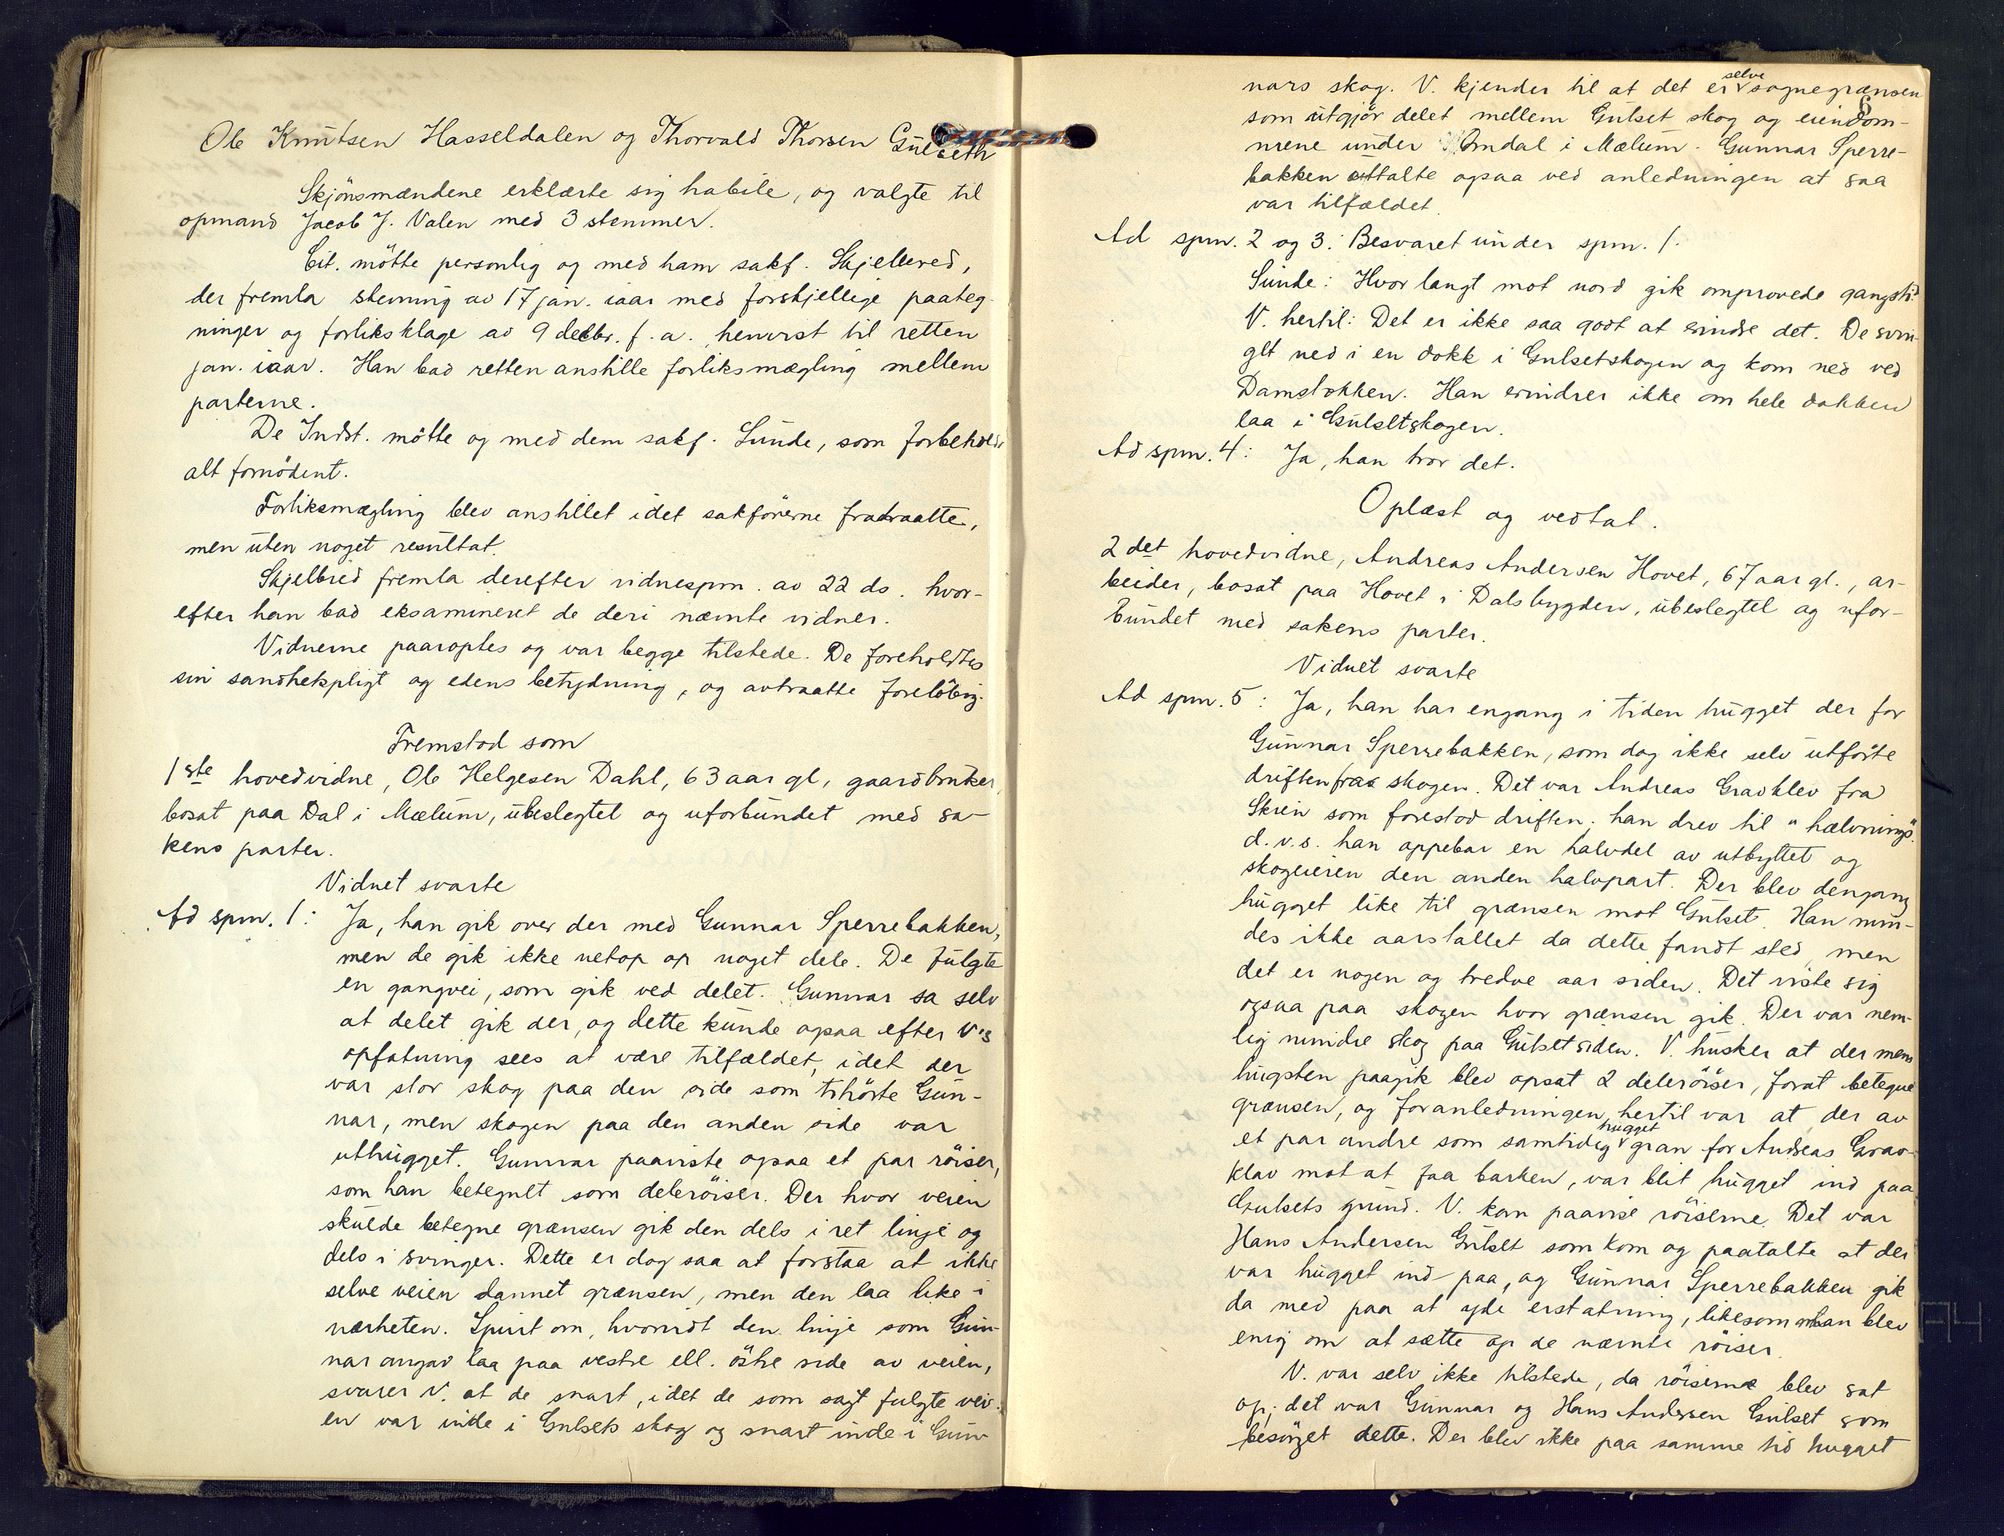 Ole Knutsen Hasseldalen og Thorvald Thorsen Gulseth
Skjönsmændene erklærte sig habile, og valgte til
opmand Jacob J. Valen med 3 stemmer.
Cit. mötte personlig og med ham sakf. Skjelbred,
der fremla stevning av 17 jan. iaar med forskjellige paateg-
ninger og forliksklage av 9 decbr. f. a. henvist til retten
jan. iaar. Han bad retten anstille forliksmægling mellem
parterne.
De Indst. mötte og med dem sakf. Sunde, som forbeholdt
alt fornödent.
Forliksmægling blev anstillet idet sakförerne fratraatte,
men uten noget resultat.
Skjelbred fremla derefter vidnespm. av 22 ds. hvor-
efter han bad eksamineret de deri nævnte vidner.
Vidnerne paaroptes og var begge tilstede. De foreholdtes
sin sandhetspligt og edens betydning, og avtraatte foreløbig.
Fremstod som
1ste hovedvidne, Ole Helgesen Dahl, 63 aar gl, gaardbruker,
bosat paa Dal i Mælum, ubeslegtet og uforbundet med sa-
kens parter.
Vidnet svarte
Ad spm. 1: Ja, han gik over der med Gunnar Sperrebakken,
men de gik ikke netop op noget dele. De fulgte
en gangvei, som gik ved delet. Gunnar sa selv
at delet gik der, og dette kunde ogsaa efter V's
opfatning sees at være tilfældet, idet der
var stor skog paa den side som tihörte Gun-
nar, men skogen paa den anden side var
uthugget. Gunnar paaviste ogsaa et par röiser,
som han betegnet som deleröiser. Der hvor veien
skulde betegne grænsen gik den dels i ret linje og
dels i svinger. Dette er dog saa at forstaa at ikke
selve veien dannet grænsen, men den laa like i
nærheten. Spurt om, hvorvidt den linje som Gun-
nar angav laa paa vestre ell. östre side av veien,
svarer V. at de snart, idet de som sagt fulgte vei-
en var inde i Gulsets skog og snart inde i Gun-
6
nars skog. V. kjender til at det er selve sognegrænsen
som utgjör delet mellem Gulset skog og eiendom-
mene under Omdal i Mælum. Gunnar Sperre-
bakken uttalte ogsaa ved anledningen at saa
var tilfældet.
Ad spm. 2 og 3: Besvaret under spm. 1.
Sunde: Hvor langt mot nord gik omprovede gangsti?
V. hertil: Det er ikke saa godt at erindre det. De svin-
get ned i en dokk i Gulsetskogen og kom ned ved
Damstokken. Han erindrer ikke om hele dokken
laa i Gulsetskogen.
Ad spm. 4: Ja, han tror det.
Oplæst og vedtat.
2det hovedvidne, Andreas Andersen Hovet, 67 aar gl., ar-
beider, bosat paa Hovet i Dalsbygden, ubeslegtet og ufor-
bundet med sakens parter.
Vidnet svarte
Ad spm. 5: Ja, han har engang i tiden hugget der for
Gunnar Sperrebakken, som dog ikke selv utförte
driften fra skogen. Det var Andreas Gravklev fra
Skien som forestod driften; han drev til "hælvnings"
d.v.s. han oppebar en halvdel av utbyttet og
skogeieren den anden halvpart. Der blev dengang
hugget like til grænsen mot Gulset. Han min-
des ikke aarstallet da dette fandt sted, men
det er nogen og tredve aar siden. Det viste sig
ogsaa paa skogen hvor grænsen gik. Der var nem-
lig mindre skog paa Gulsetsiden. V. husker at der mens
hugsten paagik blev opsat 2 deleröiser, forat betegne
grænsen, og foranledningen hertil var at der av
et par andre som samtidig hugget gran for Andreas Grav-
klev mot at faa barken, var blit hugget ind paa
Gulsets grund. V. kan paavise röiserne. Det var
Hans Andersen Gulset som kom og paatalte at der
var hugget ind paa, og Gunnar Sperrebakken gik
da med paa at yde erstatning, likesom man blev
enig om at sætte op de nævnte röiser.
V. var selv ikke tilstede, da röiserne blev sat
op; det var Gunnar og Hans Andersen Gulset som
besörget dette. Der blev ikke paa samme tid hugget